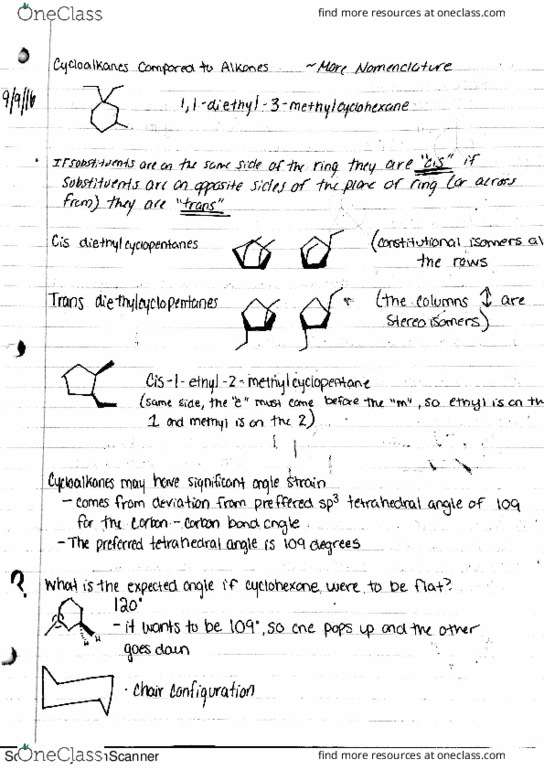 OneClass
find more resources at oneclass.com
Cycloalkanes Compared to Alkanes ~More Nomenclature
9/9/16
1,1-diethyl-3-methylcyclohexane
If substituents are on the same side of the ring they are "cis" if
substituents are on opposite sides of the plane of ring (or across
from) they are "trans"
Cis diethylcyclopentanes
(constitutional isomers al
the rows
Trans diethylcyclopentanes
(the columns ↕ are
stereoisomers)
Cis-1-ethyl-2-methylcyclopentane
(same side, the "e" must come before the "m", so ethyl is on th
1 and methyl is on the 2)
Cycloalkanes may have significant angle strain
- comes from deviation from preffered sp³ tetrahedral angle of 109
for the carbon-carbon bond angle.
- The preferred tetrahedral angle is 109 degrees
? What is the expected angle if cyclohexane were to be flat?
120°
- it wants to be 109°, so one pops up and the other
goes down
H H
· chair configuration
OneClass
Scanner
find more resources at oneclass.com